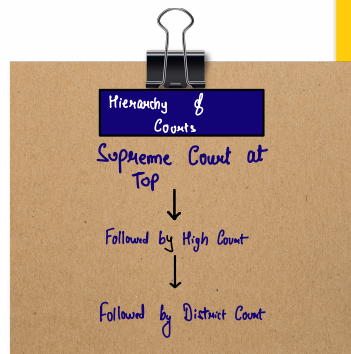 Hierarchy of
Courts
Supreme Court at
Top
Followed by High Court
Followed by District Court